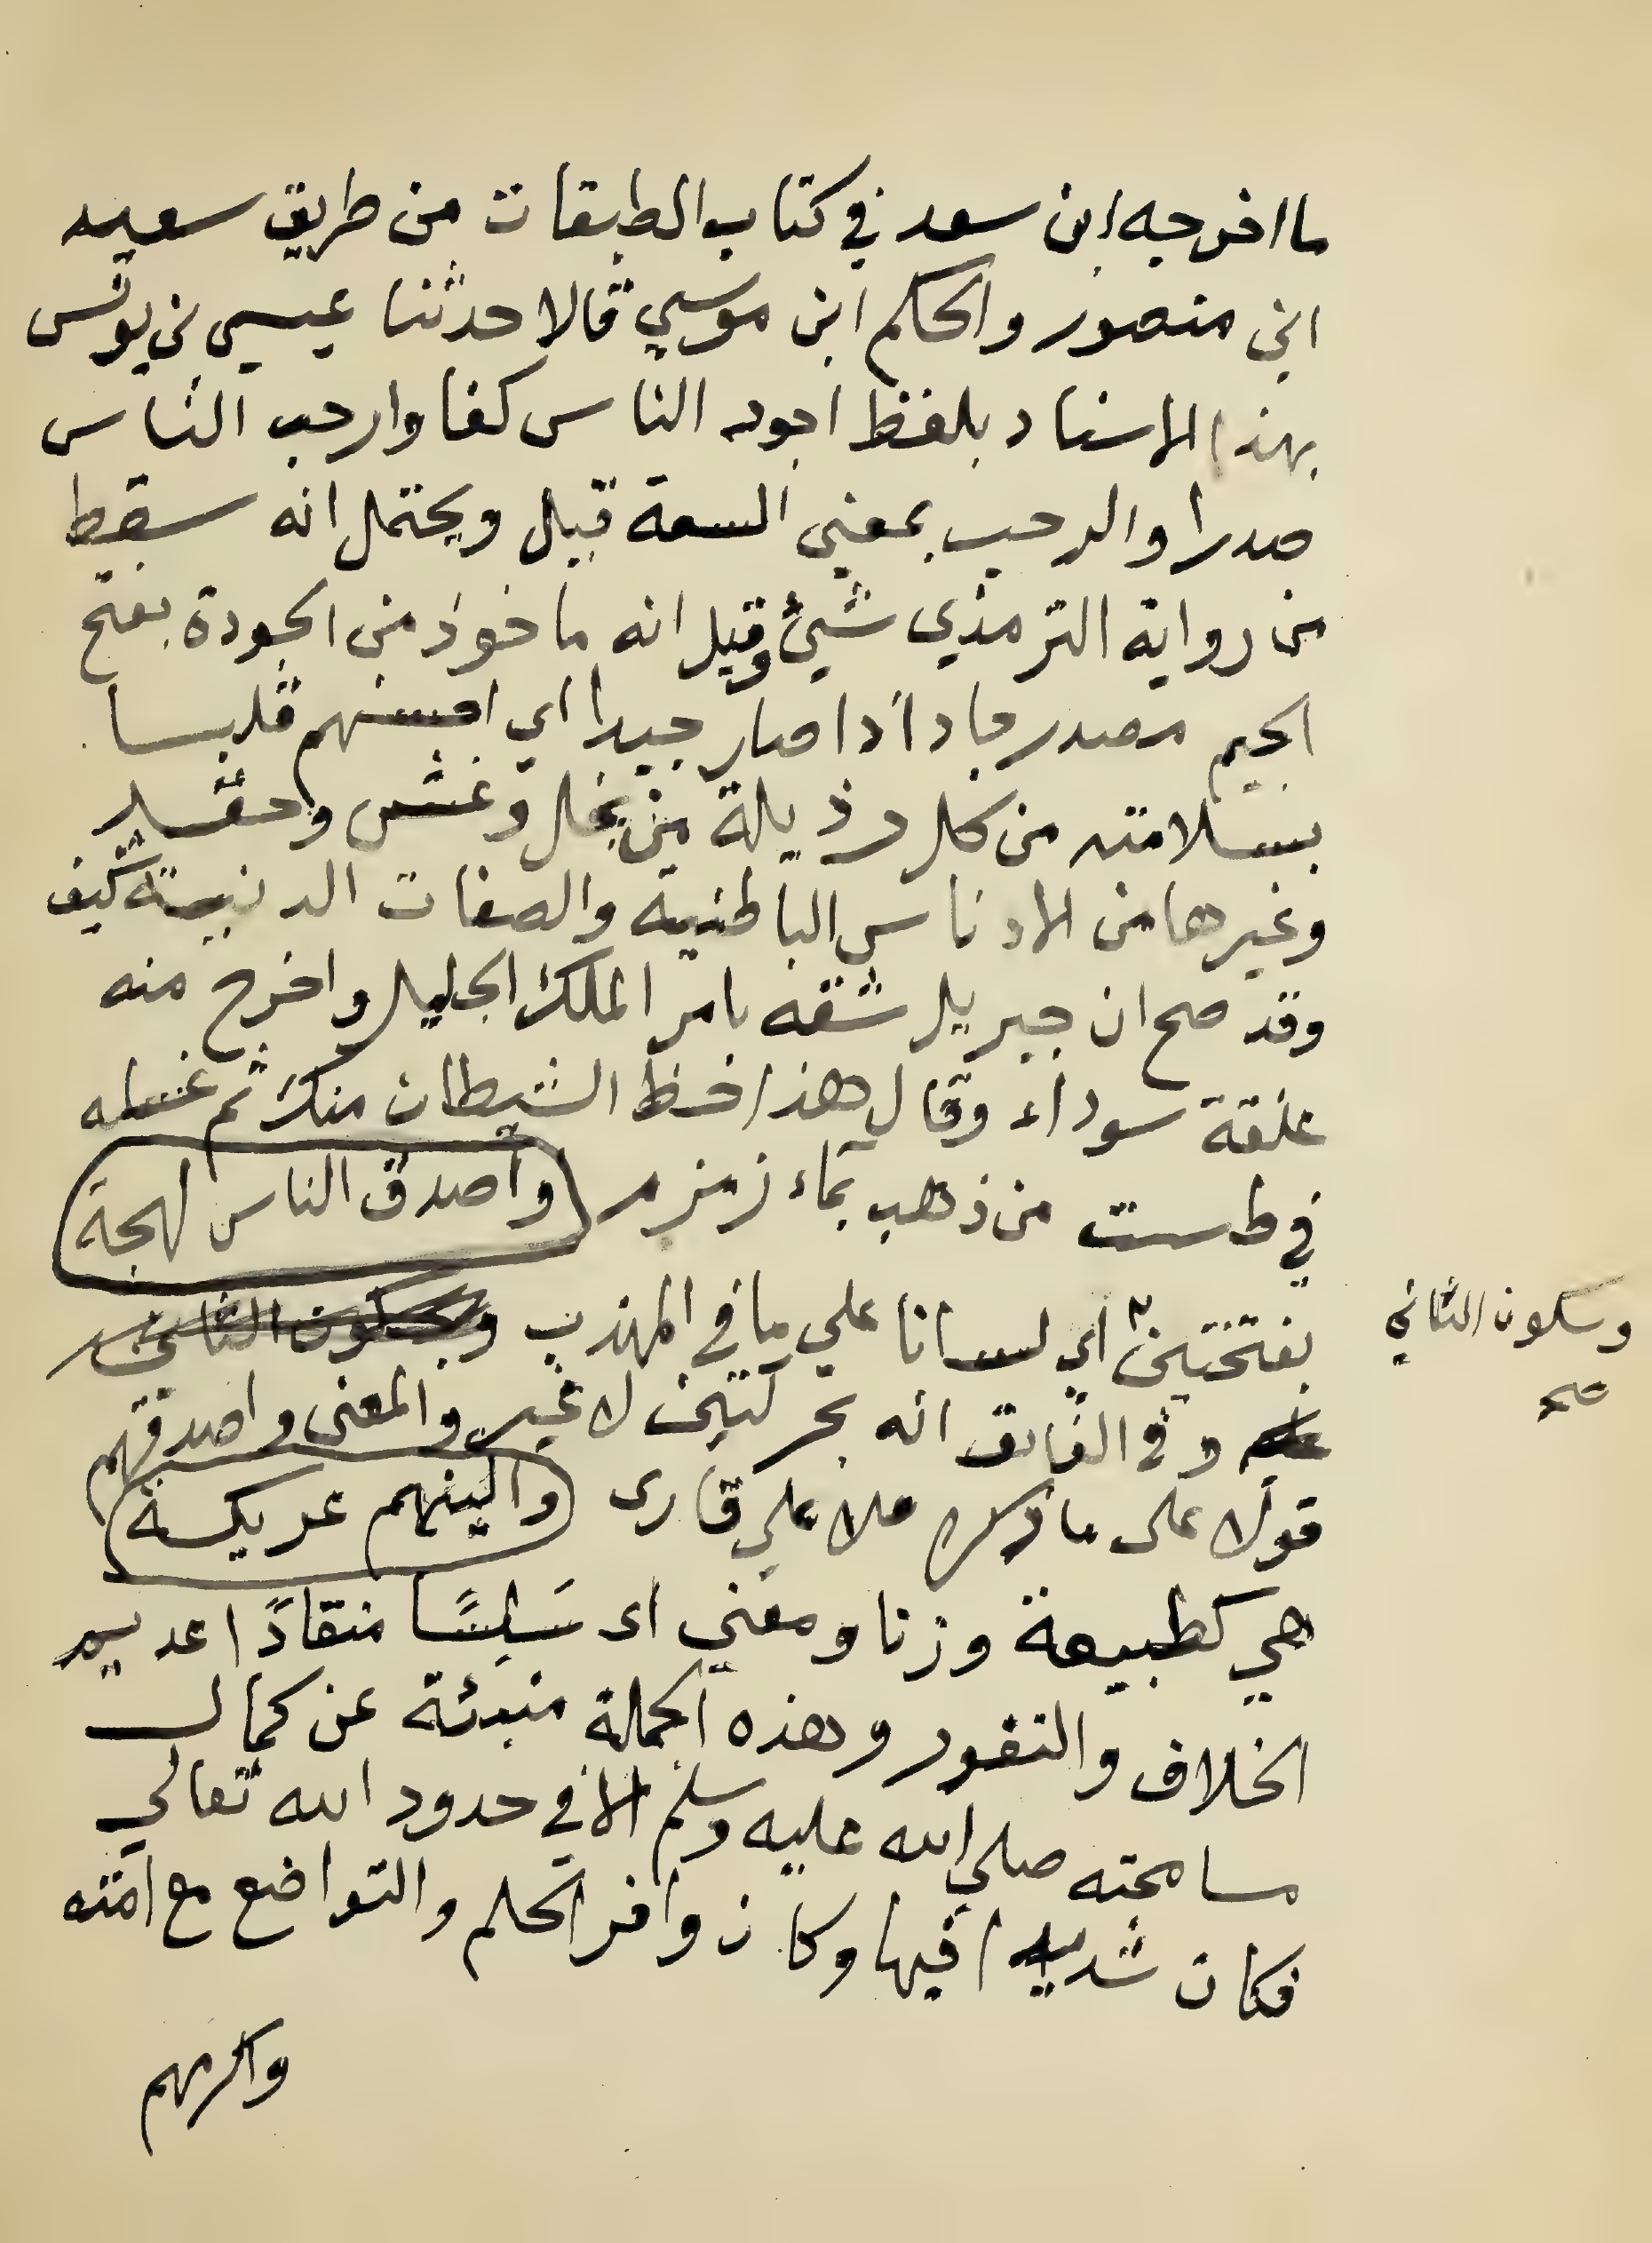 ما اخرجه ابن سعد في كتاب الطبقات من طريق سعيد
ابن منصور والحكم ابن موسي قالا حدثنا عيسي بن يونس
بهذا الاسناد بلفظ اجود الناس كفا وارحب الناس
صدرا والرحب بمعني السعة قيل ويحتمل انه سقط
من رواية الترمذي شيئ وقيل انه ماخوذ من الجودة بفتح
الجيم مصدر جاد اذا صار جيدا اي احسنهم قلبا
بسلامته من كل رذيلة من بخل وغش وحقد
وغيرها من الادناس الباطنية والصفات الدنيئة كيف
وقد صح ان جبريل شقه بامر الملك الجليل واخرج منه
علقة سوداء وقال هذا حظ الشيطان منك ثم غسله
في طست من ذهب بماء زمزم واصدق الناس لهجة
بفتحتين اي لسانا علي ما في المهذب وبسكون الثاني
وفي الفائق انه بحركتين لا غير والمعنى واصدقهم
قولا على ما ذكره ملا علي قارى والينهم عريكة
هي كطبيعة وزنا ومعني اى سَلِسًا منقادًا عديم
الخلاف والنفور وهذه الجملة منبئة عن كمال
مسامحته صلي الله عليه وسلم الا في حدود الله تعالي
فكان شديدا فيها وكان وافر الحلم والتواضع مع امته
واكرمهم
وسكون الثاني
صح